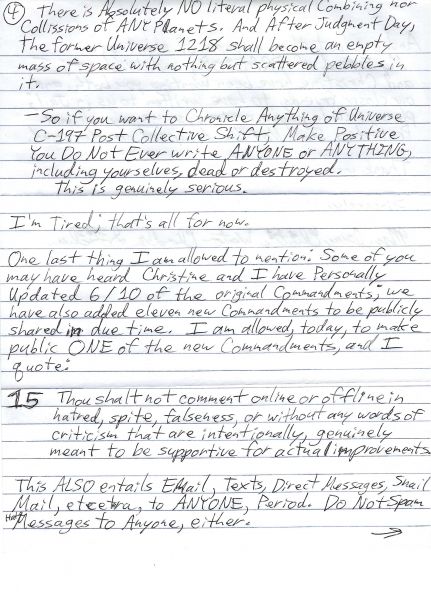 4 There is Absolutely NO literal physical Combining nor
Collissions of ANY Planets. And After Judgment Day,
The former Universe 1218 shall become an empty
mass of space with nothing but scattered pebbles in
it.
-So if you want to Chronicle Anything of Universe
C-197 Post Collective Shift; Make Positive
You Do Not Ever write ANYONE or ANYTHING,
including yourselves, dead or destroyed.
This is genuinely serious.
I'm Tired; that's all for now.
One last thing I am allowed to mention: Some of you
may have heard Christine and I have Personally
Updated 6/10 of the original Commandments; we
have also added eleven new Commandments to be publicly
shared in due time. I am allowed, today, to make
public ONE of the new Commandments, and I
quote:
15 Thou shalt not comment online or offline in
hatred, spite, falseness, or without any words of
criticism that are intentionally, genuinely
meant to be supportive for actual improvements.
This ALSO entails EMail, Texts, Direct Messages, Snail
Mail, etcetra, to ANYONE, Period. Do Not Spam
Hate Messages to Anyone, either.